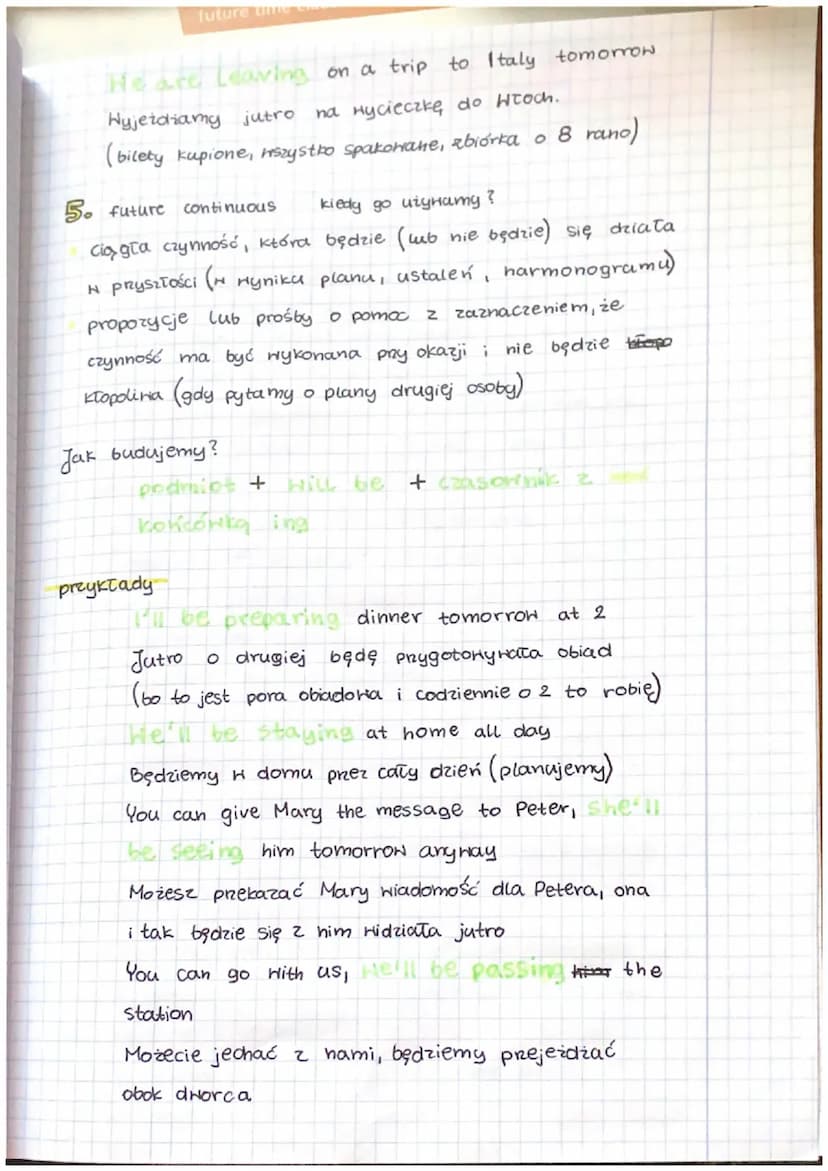 future time
We are leaving on a trip to Italy tomorrow
Wyjeżdżamy jutro na wycieczkę do Włoch.
(bilety kupione, wszystko spakowane, zbiórka o 8 rano)
5. future continuous kiedy go używamy?
ciągła czynność, która będzie (lub nie będzie) się działa
w przyszłości (w wyniku planu, ustaleń, harmonogramu)
propozycje lub prośby o pomoc z zaznaczeniem, że
czynność ma być wykonana przy okazji i nie będzie
kłopoliwa (gdy pytamy o plany drugiej osoby)
Jak budujemy?
podmiot + will be + czasownik z
końcówką ing
przykłady
I'll be preparing dinner tomorrow at 2
Jutro o drugiej będę przygotowywała obiad
(bo to jest pora obiadowa i codziennie o 2 to robię)
We'll be staying at home all day
Będziemy w domu przez cały dzień (planujemy)
You can give Mary the message to Peter, she'll
be seeing him tomorrow anyway
Możesz przekazać Mary wiadomość dla Petera, ona
i tak będzie się z nim widziała jutro
You can go with us, we'll be passing the
station
Możecie jechać z nami, będziemy przejeżdżać
obok dworca